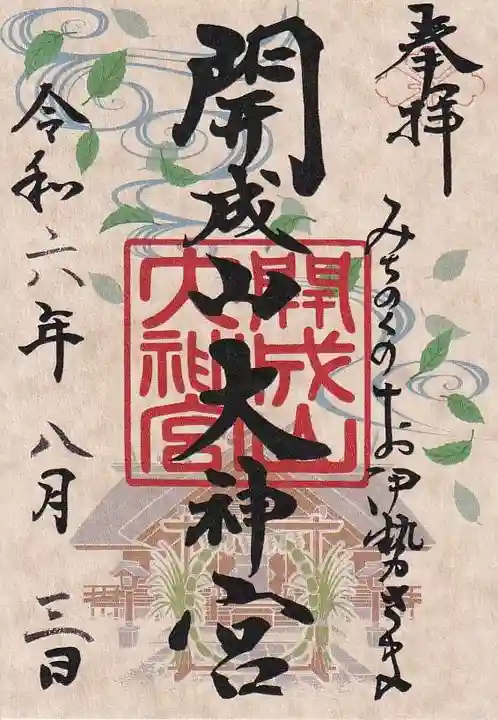 奉拝
みちのくのおお伊勢さま
開成山大神宮
開成山
大神宮
令和六年 八月 三日